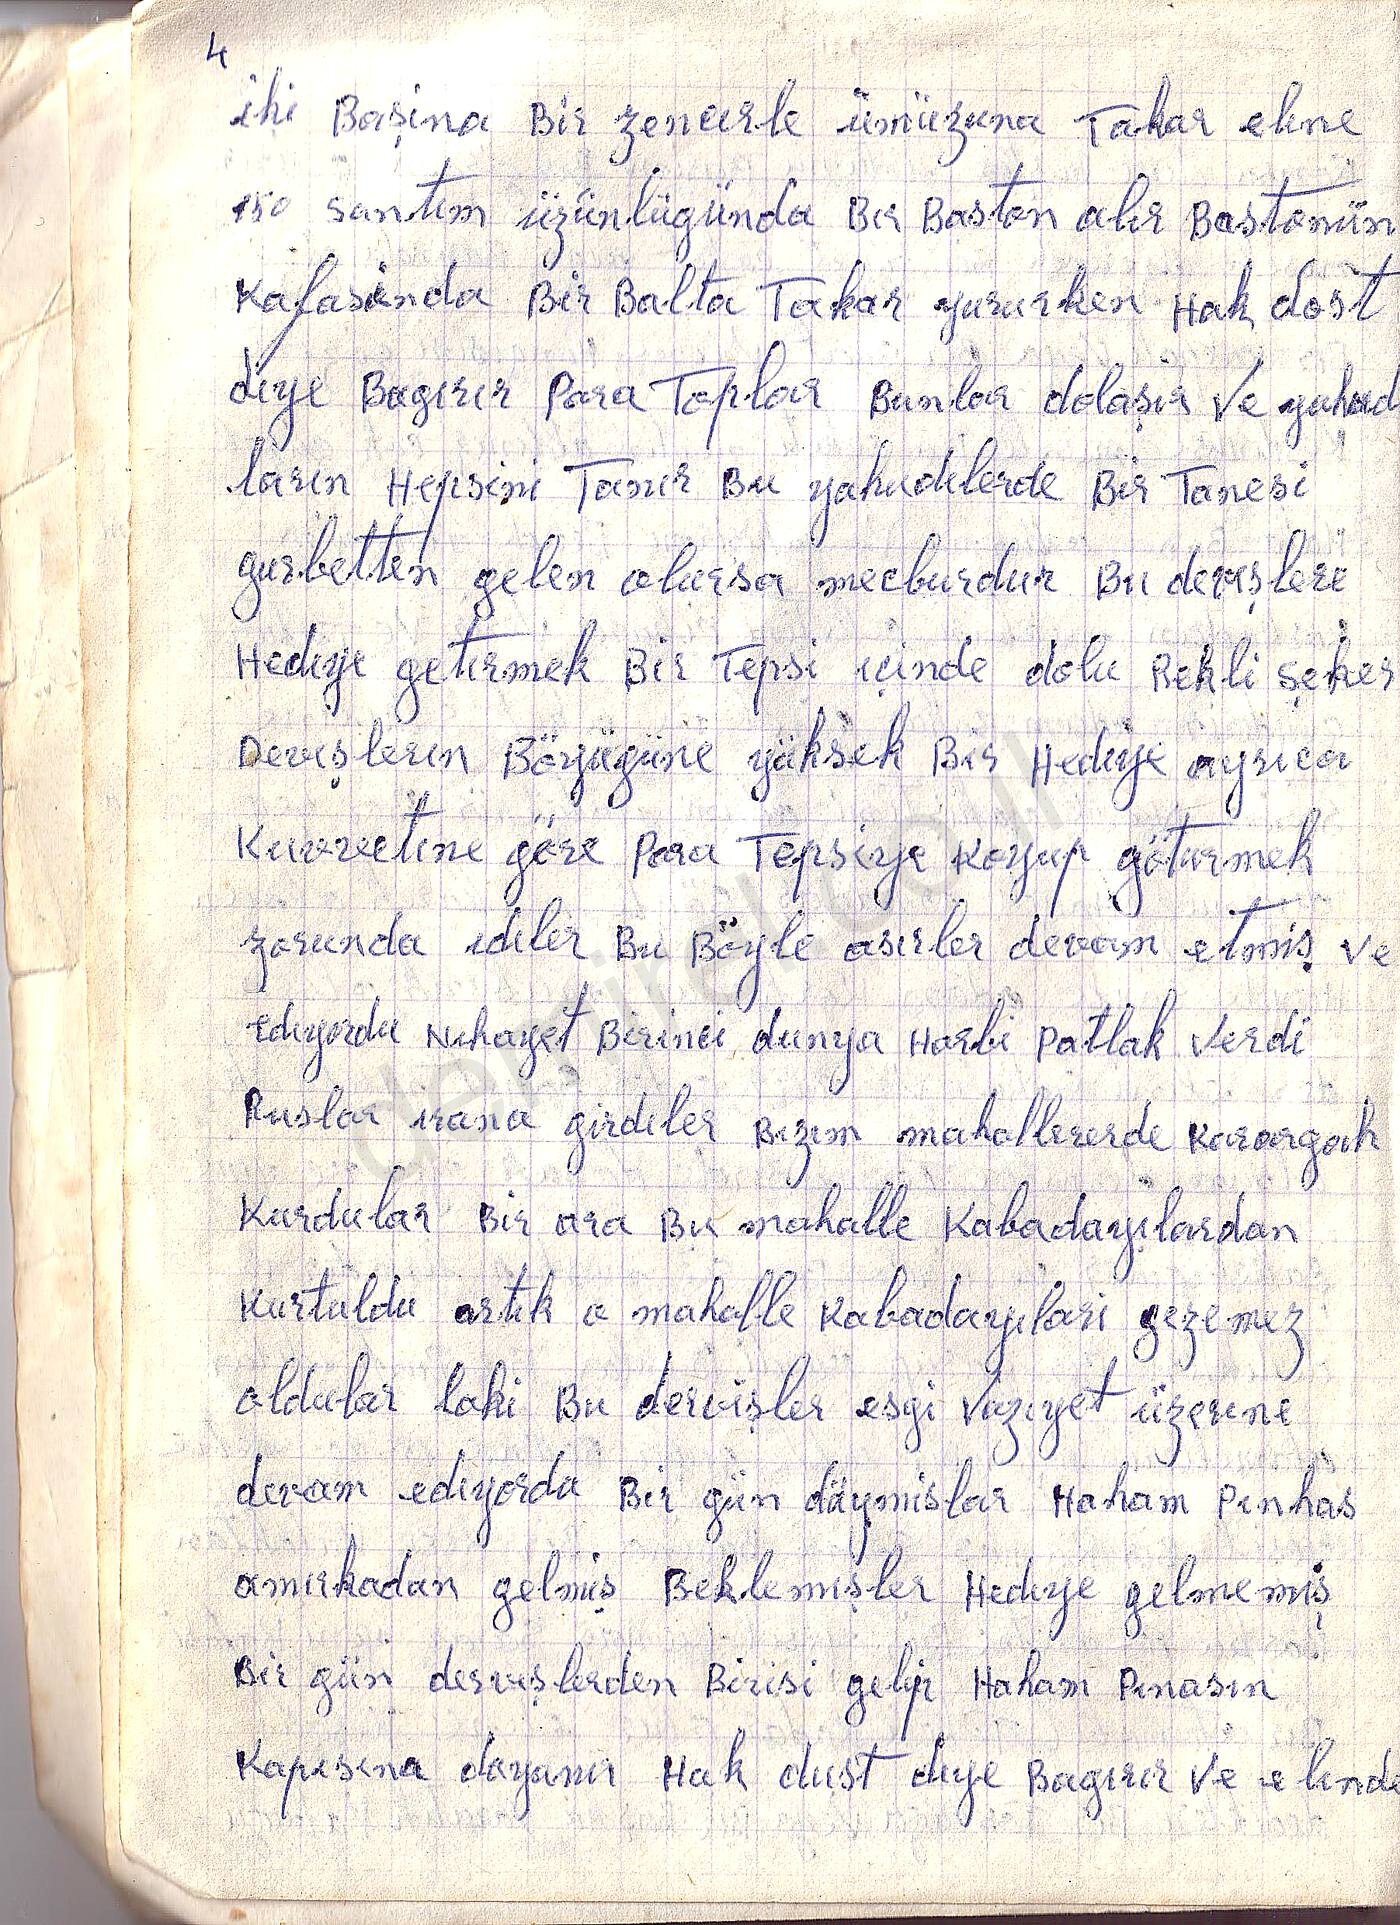 4
iki Başina Bir zencırle ümüzuna Takar eline
150 santım üzünlügünda Bir Baston alır Bastonün
Kafasinda Bir Balta Takar yururken Hak dost
dıye Bagırır Para Toplar Bunlar dolaşır Ve yahud
ların Hepsini Tanır Bu yahudılerde Bir Tanesi
gurbetten gelen olursa mecburdur Bu devışlere
Hedıye getırmek Bir Tepsi içinde dolu Bekli şeker
Devışlerın Böyügüne yüksek Bir Hedıye ayrıca
Kuvvetıne göre Para Tepsiye Koyup götürmek
zorunda ıdıler Bu Böyle asırler devam etmiş ve
edıyordu Nıhayet Birinci dunya Harbi Patlak Verdi
Ruslar ırana girdıler Bızım mahallererde Karargah
Kurdular Bir ara Bu mahalle Kabadayılardan
Kurtuldu artık o mahalle Kabadayılari gezemez
oldular laki Bu dervişler esgi Vazıyet üzerıne
devam edıyordu Bir gün düymislar Haham Pınhas
amırkadan gelmış Beklemışler Hedıye gelmemış
Bir gün dervışlerden Birisi gelır Haham Pınasın
Kapısına dayanır Hak dust dıye Bagırır Ve elınde
demirel